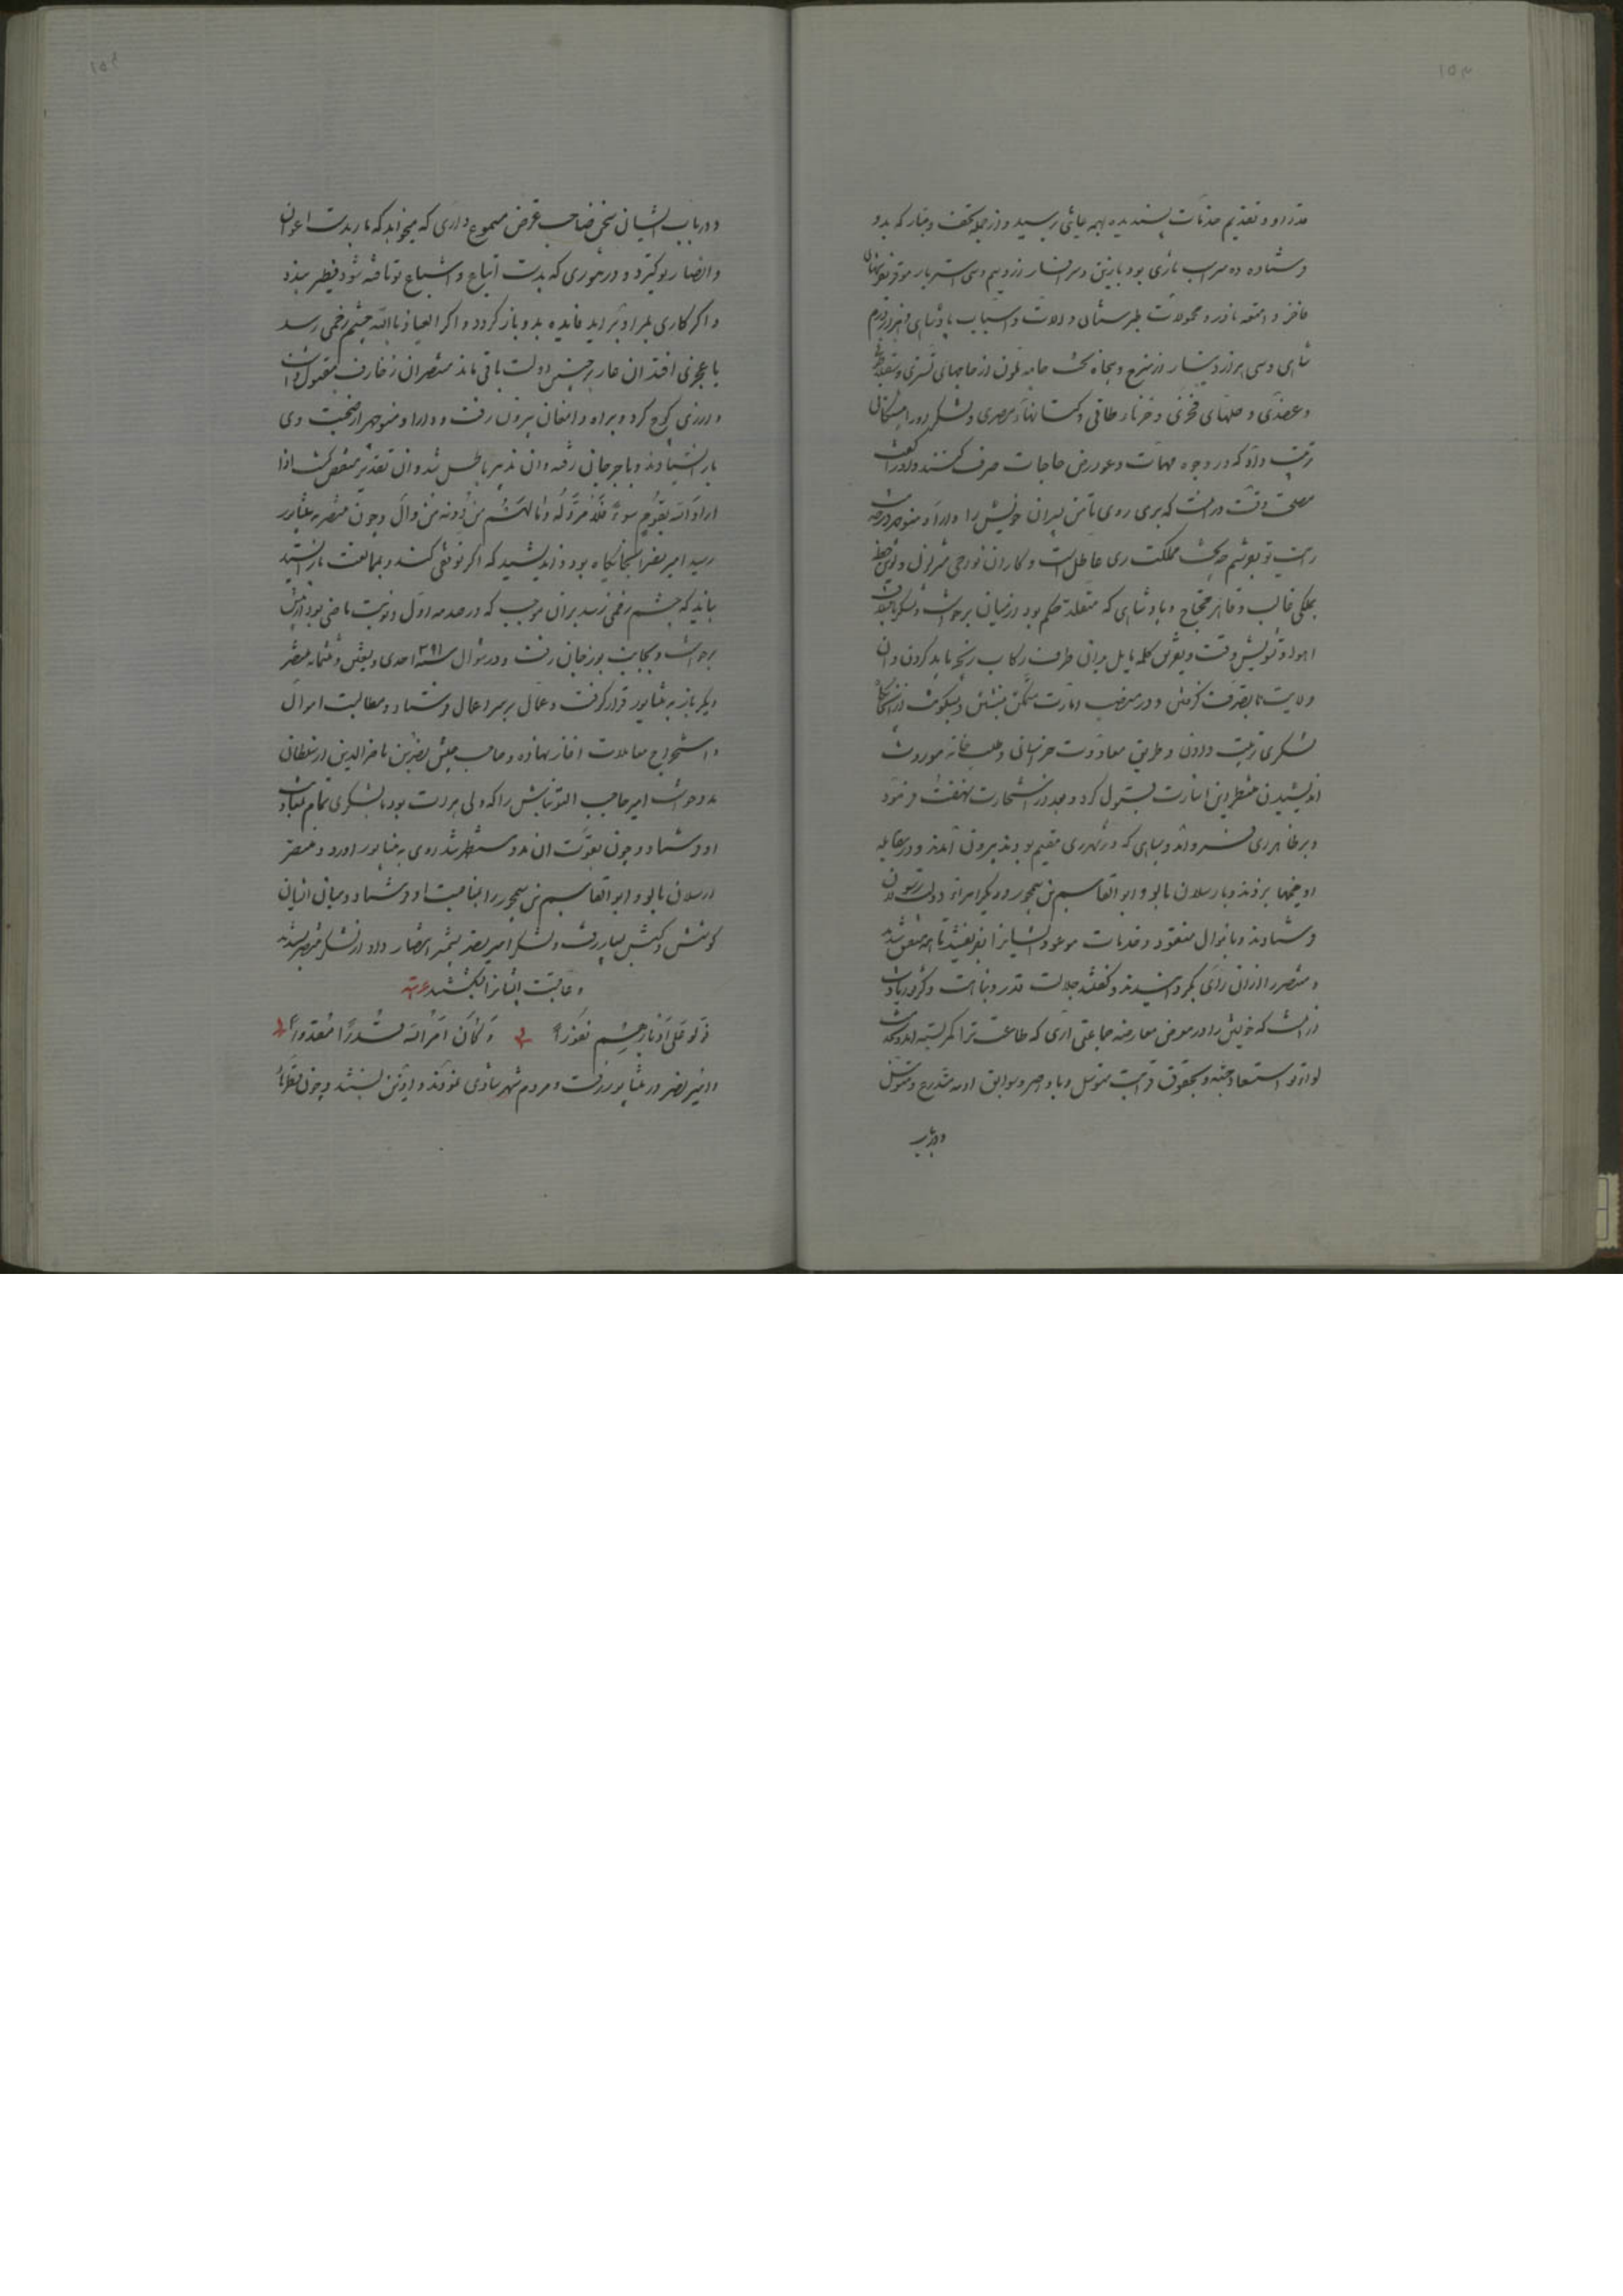 ۱۵۳
قدر او و تقدیم خدمات پسندیده بهمه غایتی رسید و از جمله تحف و مبار که بدو
فرستاده ده سر اسب تازی بود بازین و سرافسار زر و سیم و سی استر بار موقر
فاخر و امتعه نادر و محمولات طبرستان و الات و اسباب پادشاهی و هزار هزار درم
شاهی و سی هزار دینار زر سرخ و پنجاه تخت جامه ملون از جامهای تستری و
و عضدی و حلهای فخری و خزهای طاقی و کتانهای مصری و لشکر او را
ترتیب داد که در وجوه مهمات و عوارض حاجات صرف کنند و او را گفت
مصلحت وقت در انست که بری روی تا من پسران خویش را دارا و منوچهر در خدمت
رایت تو بفرستم چه تخت مملکت ری عاطل است و کار آن نواحی متزلزل و
بملکی غالب و قاهر محتاج و پادشاهی که متقلد حکم بود از میان برخواست و لشکر باختلاف
اهوا و تشویش وقت و تفرق کلمه مایل بدان طرف رکاب رنجه باید کردن و آن
ولایت با تصرف گرفتن و در منصب امارت متمکن نشستن و
لشکری ترتیب دادن و طریق معاودت خراسان و طلب خانه موروث
اندیشیدن منتصر این اشارت قبول کرد و بعد از استخارت نهضت فرمود
و بر ظاهر ری فرو آمد و سپاهی که در شهر ری مقیم بودند بیرون آمدند و در مقابله
او خیمها بزدند و با ارسلان بالو و ابو القاسم بن سیمجور و دیگر امراء دولت رسولان
فرستادند و باموال منقود و خدمات موعود ایشانرا بفریفتند تا همه متفق شدند
و منتصر را از آن رای بگردانیدند و گفتند جلالت قدر و نباهت ذکر و
از آنست که خویش را در معرض معارضه جماعتی آری که طاعت ترا کمر بسته اند و
لوای تو استسعاد جسته و بحقوق قرابت متوسل و باواصر و سوابق ادمه متدرع و متوسل
و در باب
۱۵۴
و در باب ایشان سخن صاحب غرض مسموع داری که میخواهد که مار بدست اعوان
و انصار تو گیرد و در شوری که بدست اتباع و اشیاع تو تافته شود فطیر بندد
و اگر کاری بمراد برآید فایده بدو باز گردد و اگر العیاذ بالله چشم زخمی رسد
یا عجزی افتد آن عار بر جبین دولت باقی ماند منتصر آن زخارف مقبول داشت
و از ری کوچ کرد و براه دامغان بیرون رفت و دارا و منوچهر از صحبت وی
باز ایستادند و با جرجان رفته و آن تدبیر باطل شد و آن تقدیر منتقض گشت اذا
اراد الله بقوم سوءا فلا مرد له و ما لهم من دونه من وال و چون منتصر به نشابور
رسید امیر نصر آنجایگاه بود و اندیشید که اگر توقفی کند و بممانعت بازایستد
نباید که چشم زخمی رسد بر آن موجب که در صدمه اول و نوبت ماضی بود از پیش
برخواست و بجانب بوزجان رفت و در شوال سنه ۳۹۱ احدی و تسعین و ثلثمائه منتصر
دیگر باز به نشابور قرار گرفت و عمال بر سر اعمال فرستاد و مطالبت اموال
و استخراج معاملات آغاز نهاده و صاحب جیش نصر بن ناصر الدین از سلطان
مدد خواست امیر حاجب التونتاش را که والی هرات بود با لشکری تمام بمعاونت
او فرستاد و چون بقوت آن مدد مستظهر شد روی به نشابور آورد و منتصر
ارسلان بالو و ابو القاسم بن سیمجور را بمناصبت او فرستاد و میان ایشان
کوشش و کشش بسیار رفت و لشکر امیر نصر شمشیر انتصار داد از لشکر منتصر بستدند
و عاقبت ایشانرا بشکستند عربیه
تولوا علی ادبارهم نفورا و کان امر الله قدرا مقدورا
و امیر نصر در نشابور رفت و مردم شهر شادی نمودند و آذین بستند و چون